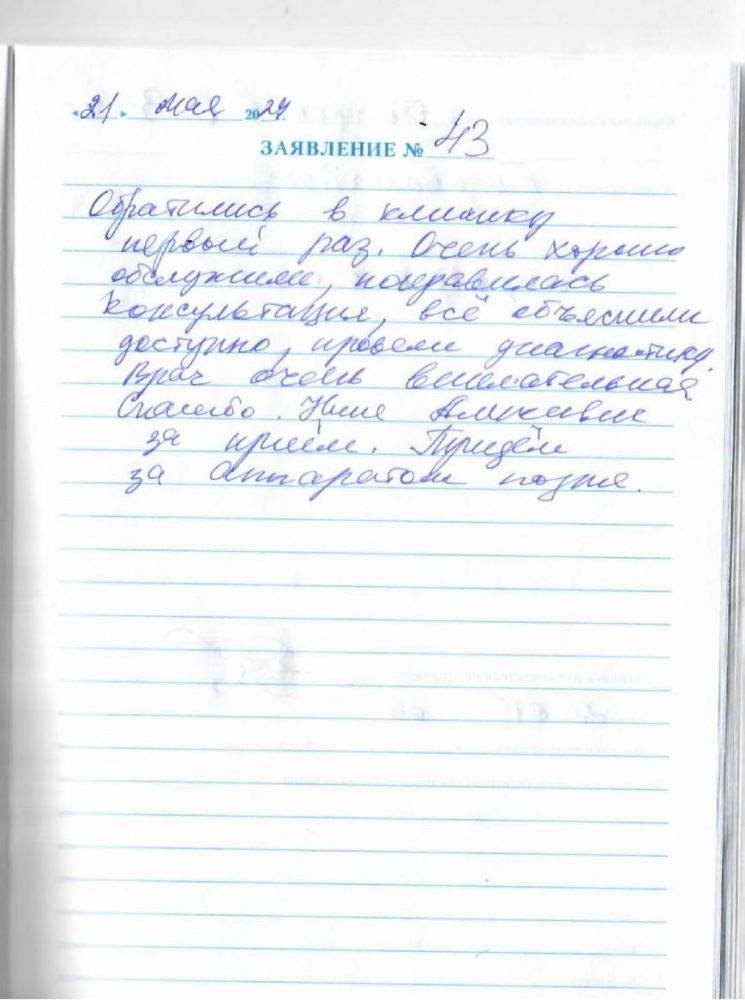 «21» мая 2024
ЗАЯВЛЕНИЕ № 43
Обратились в клинику
первый раз. Очень хорошо
обслужили, понравилась
консультация, всё объяснили
доступно, провели диагностику.
Врач очень внимательная
Спасибо. Нине
за приём. Придём
за аппаратом позже.